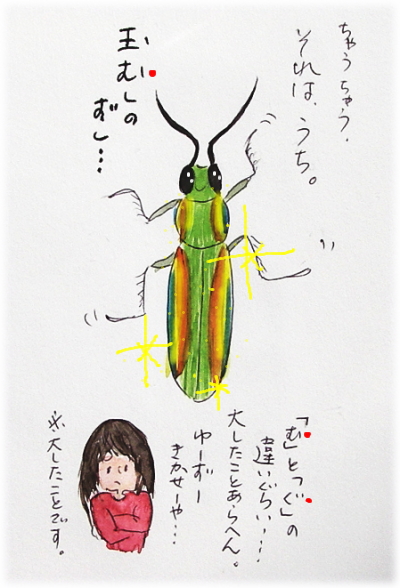 ちゃうちゃう、
それは、うち。
玉むしの
ずし…
「む」と「ぐ」の
違いぐらい…
大したことあらへん。
ゆーずー
きかせーや…
※大したことです。